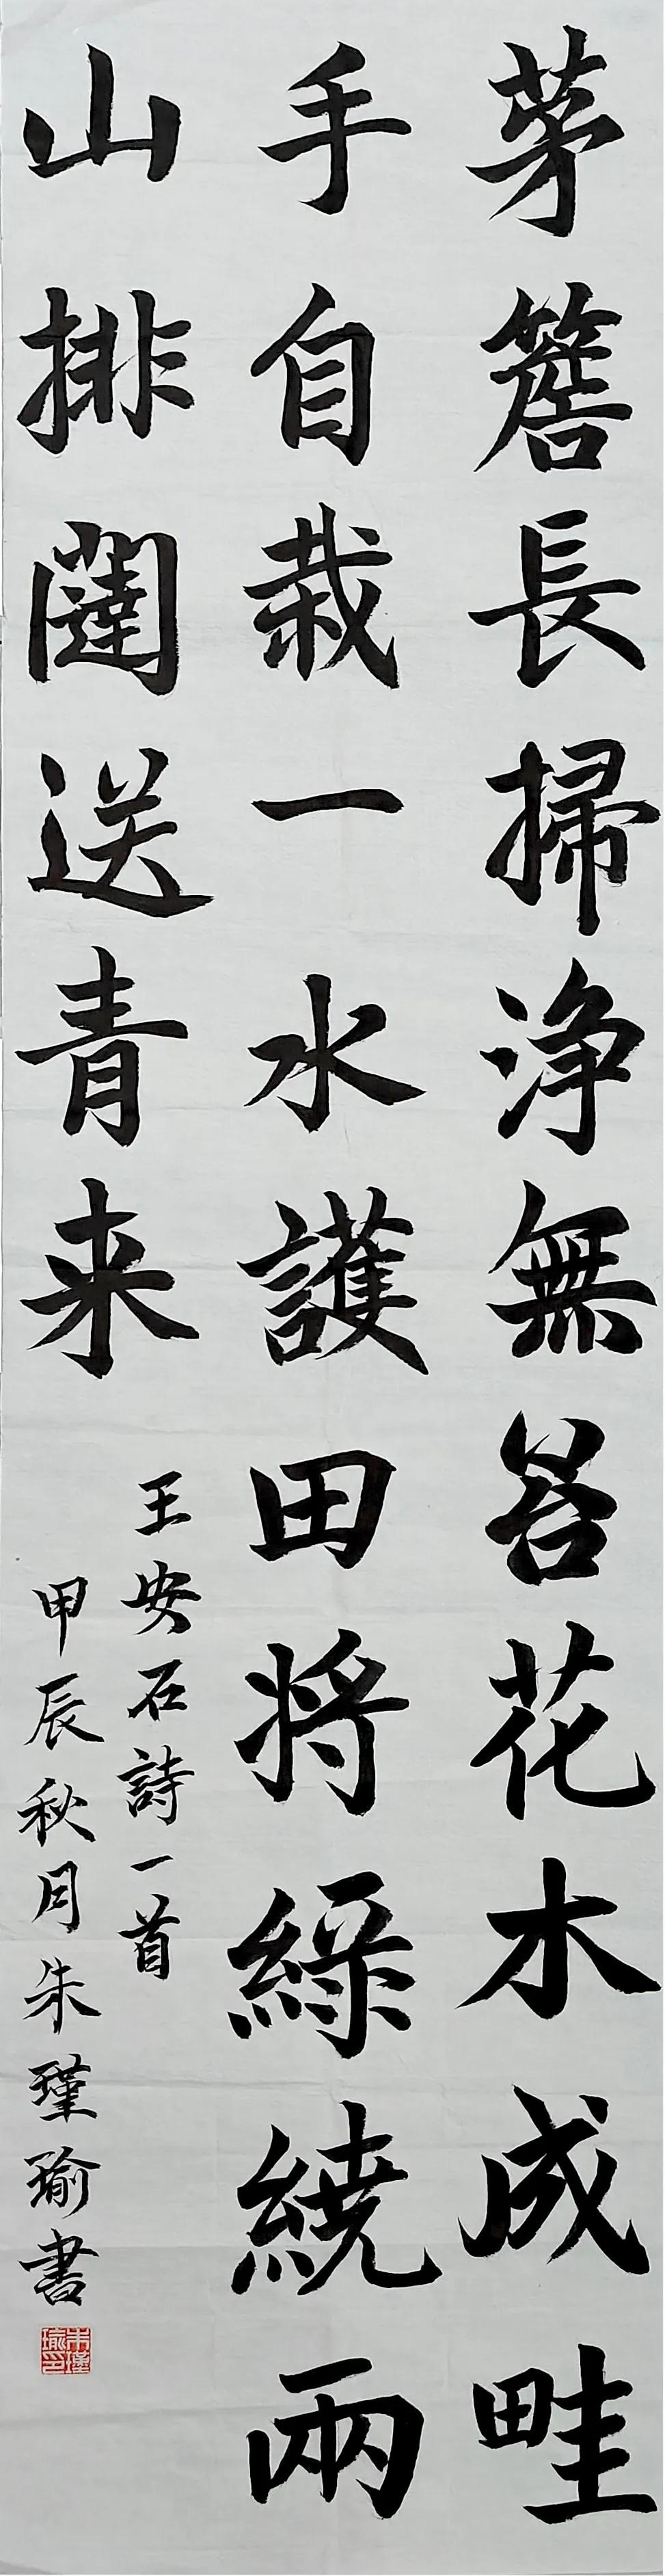 茅簷長掃浄無苔花木成畦
手自栽一水護田将綠繞兩
山排闥送青来
王安石詩一首
甲辰秋月朱瑾瑜書
朱瑾瑜印